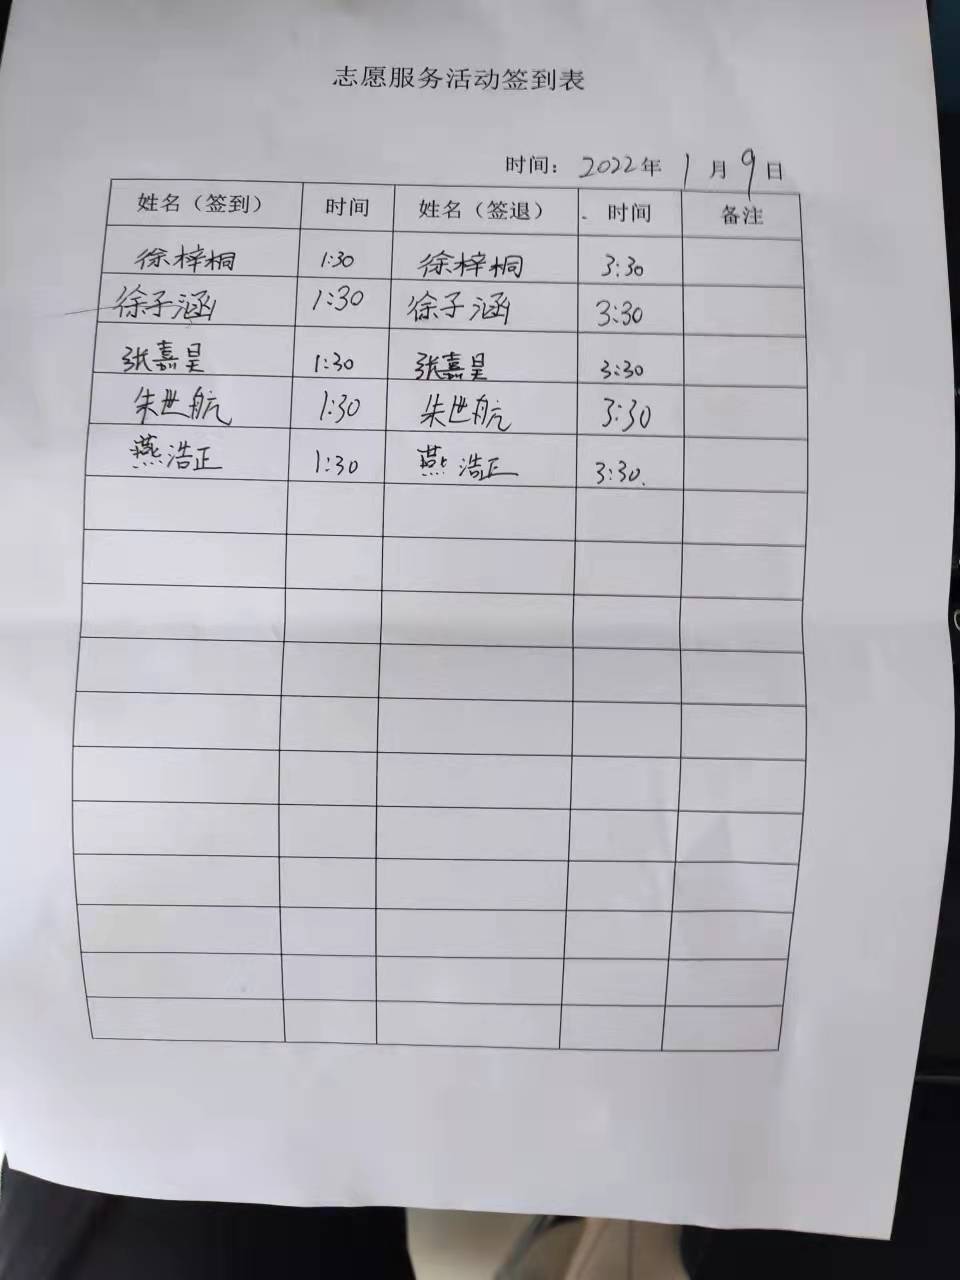 志愿服务活动签到表
时间：2022年1月9日
姓名（签到） 时间 姓名（签退） 时间 备注
徐梓桐 1:30 徐梓桐 3:30
徐子涵 1:30 徐子涵 3:30
张嘉昊 1:30 张嘉昊 3:30
朱世航 1:30 朱世航 3:30
燕浩正 1:30 燕浩正 3:30.